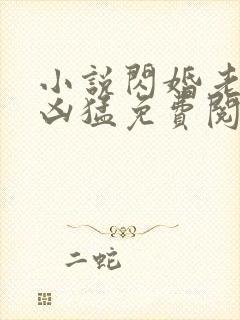 小説閃婚老
凶猛免費閱
二蛇